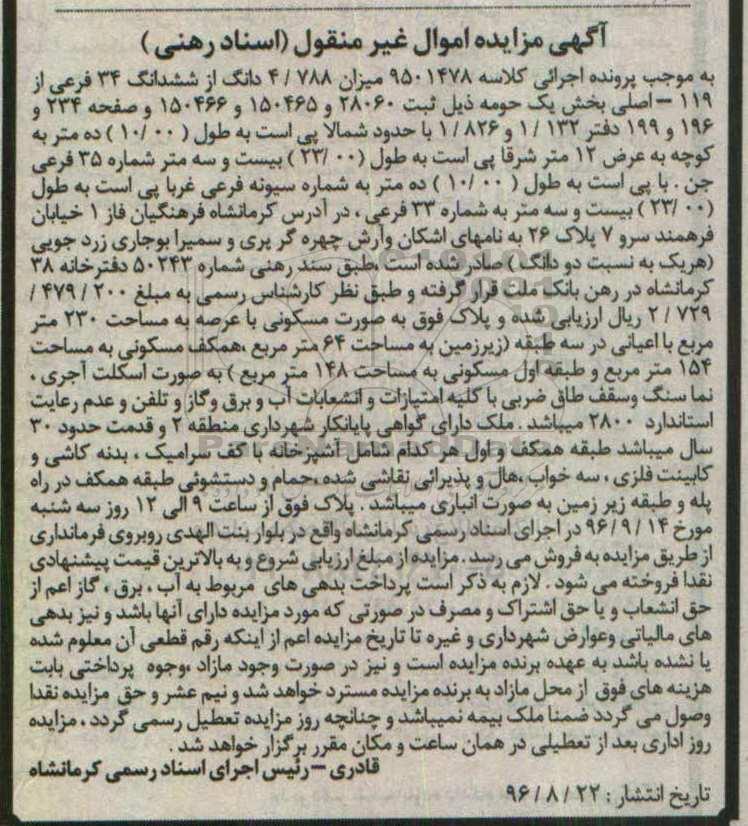 آگهی مزایده اموال غیر منقول (اسناد رهنی)
به موجب پرونده اجرائی کلاسه ۹۵۰۱۴۷۸ میزان ۴/۷۸۸ دانگ از ششدانگ ۳۴ فرعی از
۱۱۹ – اصلی بخش یک حومه ذیل ثبت ۲۸۰۶۰ و ۱۵۰۴۶۵ و ۱۵۰۴۶۶ و صفحه ۲۳۴ و
۱۹۶ و ۱۹۹ دفتر ۱/۱۳۲ و ۱/۸۲۶ با حدود شمالا پی است به طول (۱۰/۰۰) ده متر به
کوچه به عرض ۱۲ متر شرقا پی است به طول (۲۳/۰۰) بیست و سه متر شماره ۳۵ فرعی
جن . با پی است به طول (۱۰/۰۰) ده متر به شماره سیونه فرعی غربا پی است به طول
(۲۳/۰۰) بیست و سه متر به شماره ۳۳ فرعی ، در آدرس کرمانشاه فرهنگیان فاز ۱ خیابان
فرهمند سرو ۷ پلاک ۲۶ به نامهای اشکان وآرش چهره گر پری و سمیرا بوجاری زرد جویی
(هریک به نسبت دو دانگ ) صادر شده است ،طبق سند رهنی شماره ۵۰۲۴۳ دفترخانه ۳۸
کرمانشاه در رهن بانک ملت قرار گرفته و طبق نظر کارشناس رسمی به مبلغ ۲۰۰ / ۴۷۹ /
۷۲۹ / ۲ ریال ارزیابی شده و پلاک فوق به صورت مسکونی با عرصه به مساحت ۲۳۰ متر
مربع با اعیانی در سه طبقه (زیرزمین به مساحت ۶۴ متر مربع ،همکف مسکونی به مساحت
۱۵۴ متر مربع و طبقه اول مسکونی به مساحت ۱۴۸ متر مربع ) به صورت اسکلت آجری ،
نما سنگ وسقف طاق ضربی با کلیه امتیازات و انشعابات آب و برق وگاز و تلفن و عدم رعایت
استاندارد ۲۸۰۰ میباشد . ملک دارای گواهی پایانکار شهرداری منطقه ۲ و قدمت حدود ۳۰
سال میباشد طبقه همکف و اول هر کدام شامل آشپزخانه با کف سرامیک ، بدنه کاشی و
کابینت فلزی ، سه خواب ،هال و پذیرائی نقاشی شده ،حمام و دستشوئی طبقه همکف در راه
پله و طبقه زیر زمین به صورت انباری میباشد . پلاک فوق از ساعت ۹ الی ۱۲ روز سه شنبه
مورخ ۹۶/۹/۱۴ در اجرای اسناد رسمی کرمانشاه واقع در بلوار بنت الهدی روبروی فرمانداری
از طریق مزایده به فروش می رسد . مزایده از مبلغ ارزیابی شروع و به بالاترین قیمت پیشنهادی
نقدا فروخته می شود . لازم به ذکر است پرداخت بدهی های مربوط به آب ، برق ، گاز اعم از
حق انشعاب و یا حق اشتراک و مصرف در صورتی که مورد مزایده دارای آنها باشد و نیز بدهی
های مالیاتی وعوارض شهرداری و غیره تا تاریخ مزایده اعم از اینکه رقم قطعی آن معلوم شده
یا نشده باشد به عهده برنده مزایده است و نیز در صورت وجود مازاد ،وجوه پرداختی بابت
هزینه های فوق از محل مازاد به برنده مزایده مسترد خواهد شد و نیم عشر و حق مزایده نقدا
وصول می گردد ضمنا ملک بیمه نمیباشد و چنانچه روز مزایده تعطیل رسمی گردد ، مزایده
روز اداری بعد از تعطیلی در همان ساعت و مکان مقرر برگزار خواهد شد .
قادری – رئیس اجرای اسناد رسمی کرمانشاه
تاریخ انتشار : ۹۶/۸/۲۲